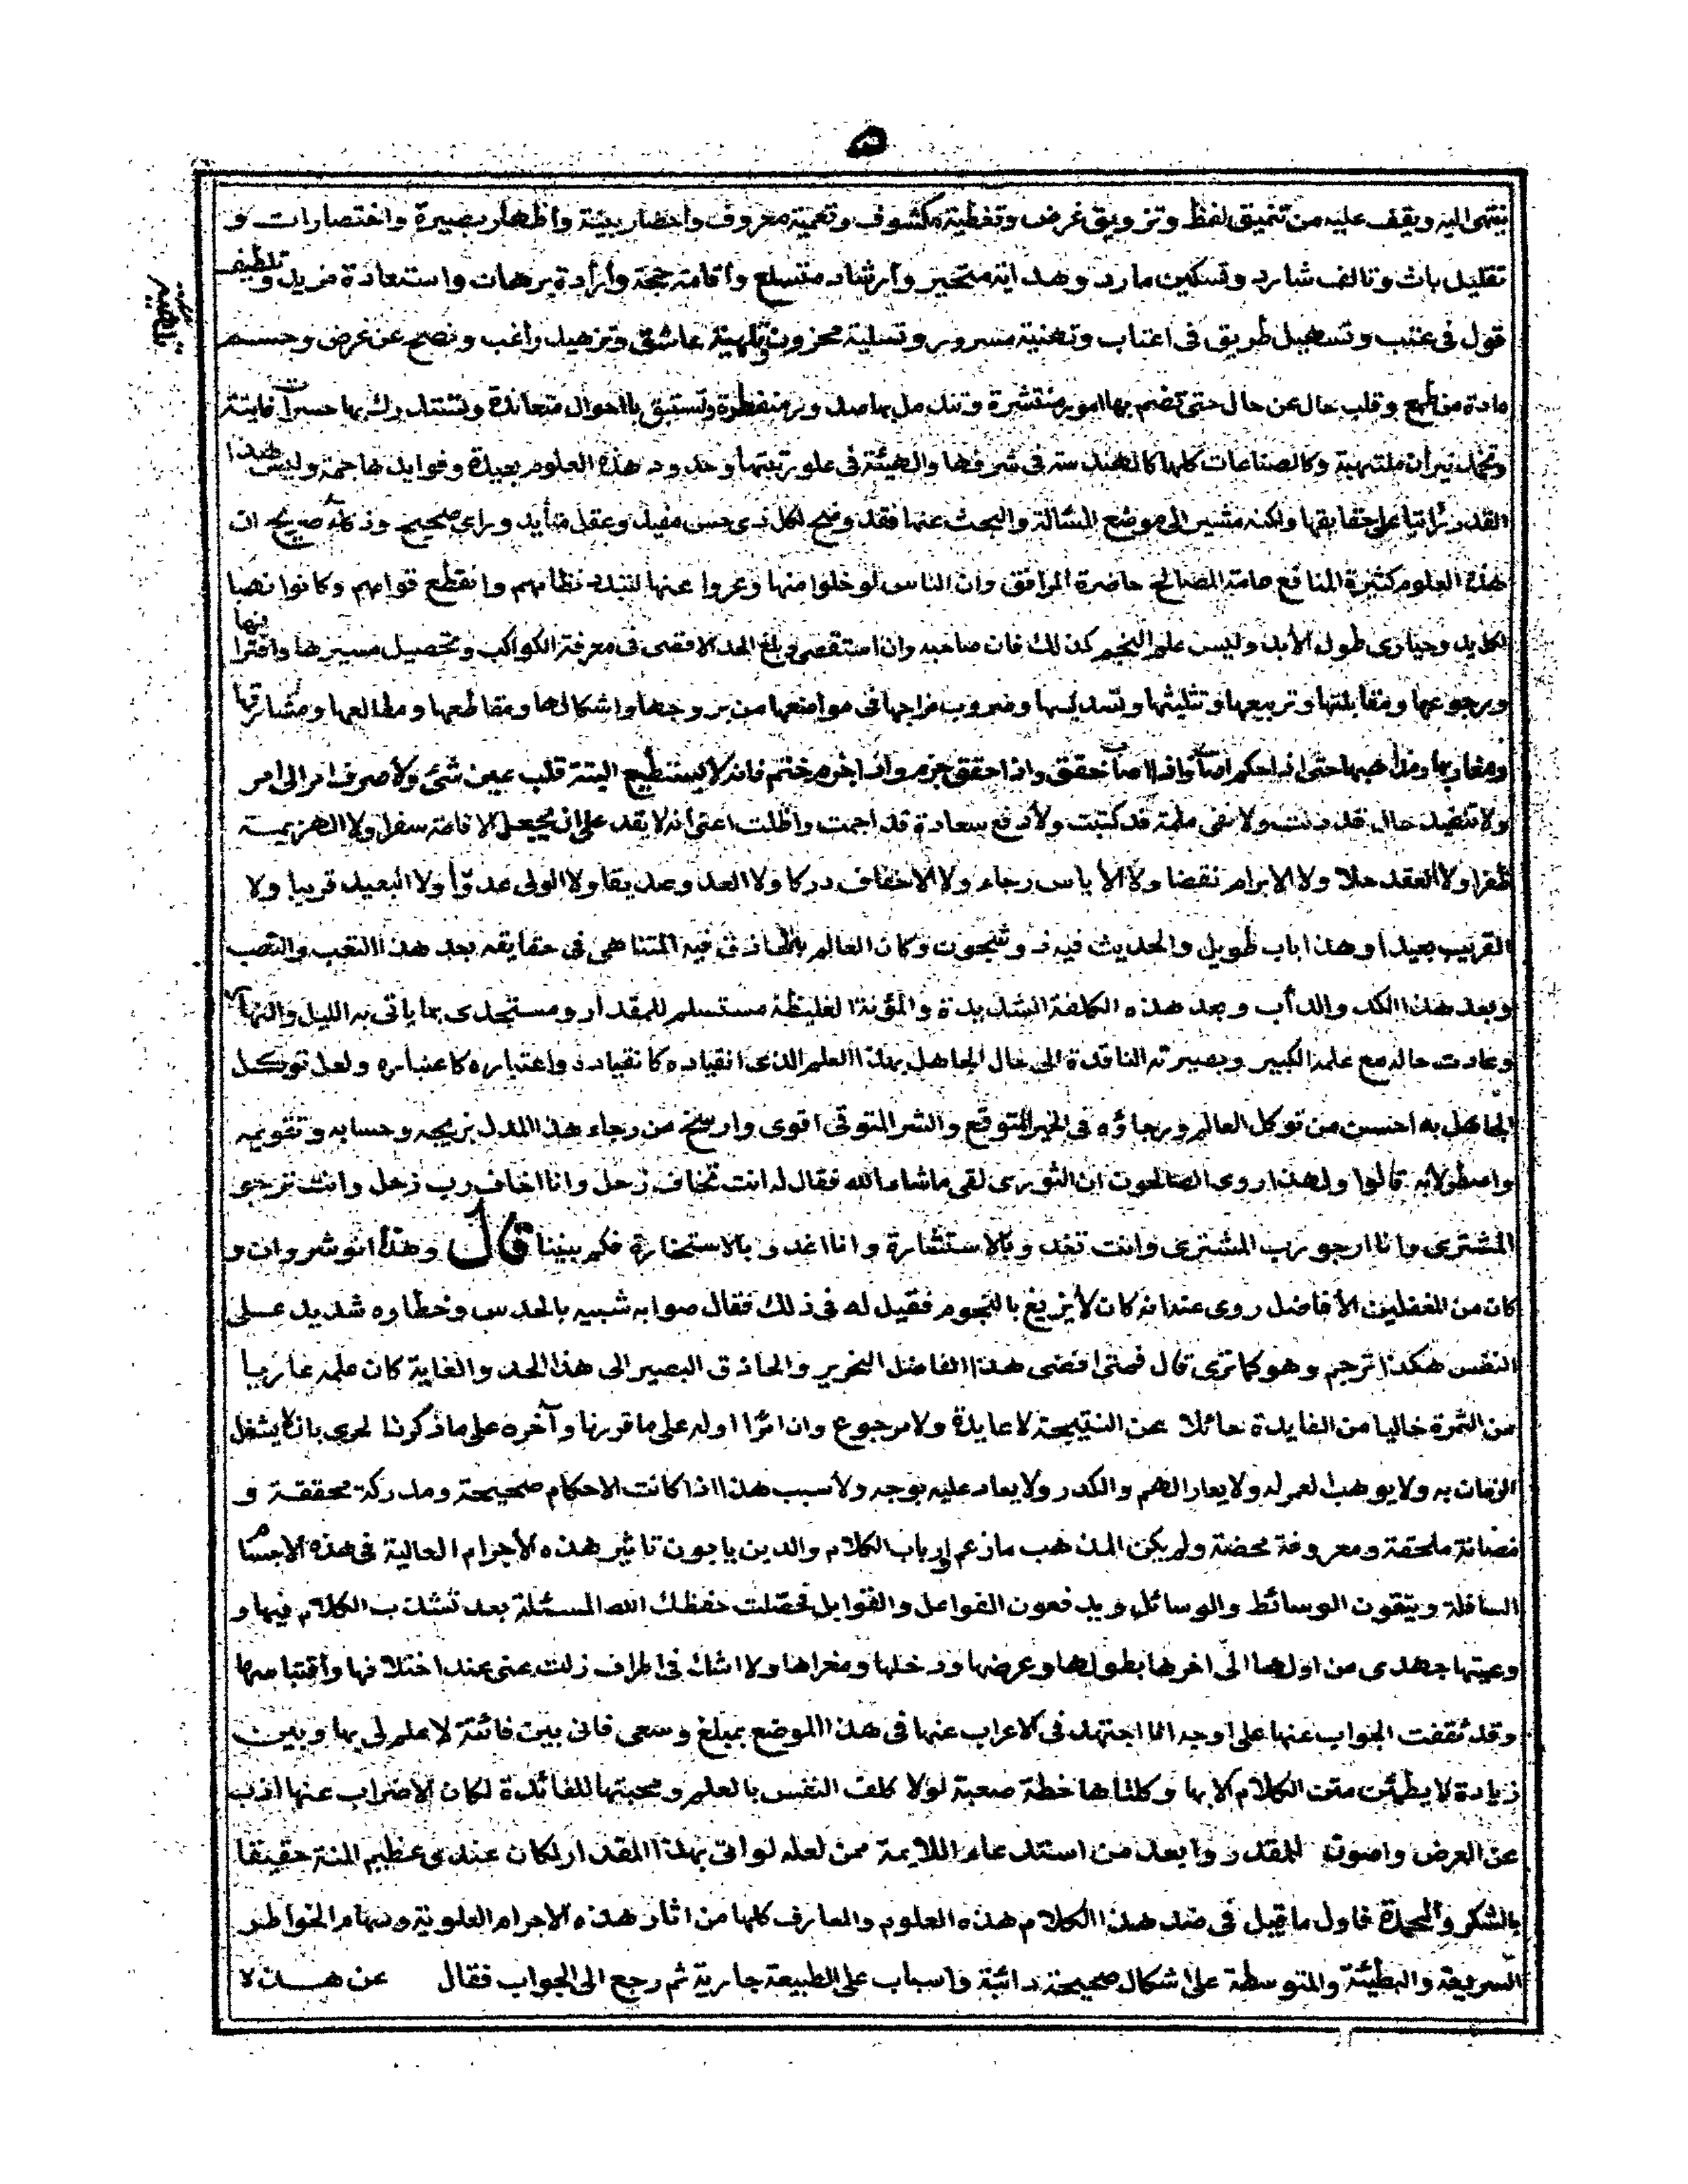 ٥
ينتهى اليه ويقف عليه من تنميق لفظ وتزويق غرض وتغطية مكشوف وتعمية معروف واحضار بينة واظهار بصيرة واختصارات و
تقليل باث وتالف شارد وتسكين مارد وهداية متحير وارشاد متسلع واقامة حجة وارادة برهان واستعادة مزيد وتلطيف
قول فى عتب وتسهيل طريق فى اعتاب وتهنية مسرور وتسلية محزون وتلهية عاشق وتزهيد راغب ونصح عن غرض وحسم
مادة من طمع وقلب حال عن حال حتى تضم بها امور منتشرة وتندمل بها صدور منفطرة وتستبق بها احوال متعاندة وتستدرك بها حسرات فايتة
وتخمد نيران ملتهبة وكالصناعات كلها كالهندسة فى شرفها والهيئة فى علو رتبتها وحدود هذه العلوم بعيدة وفوايدها جمة وليس هذا
القدر اتيا على حقايقها ولكنه مشير الى موضع المسألة والبحث عنها فقد وضح لكل ذى حس مفيد وعقل متأيد وراى صحيح وذكاء صريح ان
هذه العلوم كثيرة المنافع عامة المصالح حاضرة المرافق وان الناس لو خلوا منها وعروا عنها لتبدد نظامهم وانقطع قوامهم وكانوا نهبا
لكل يد وحيارى طول الأبد وليس علم النجوم كذلك فان صاحبه وان استقصى وبلغ الحد الاقصى فى معرفة الكواكب وتحصيل مسيرها واقترانها
ورجوعها ومقابلتها وتربيعها وتثليثها وتسديسها وضروب مزاجها فى مواضعها من بروجها واشكالها ومقاطعها ومطالعها ومشارقها
ومغاربها ومذاهبها حتى اذا حكم اصاب واذا اصاب حقق واذا حقق جزم واذا جزم ختم فانه لا يستطيع البتة قلب عين شئ ولا صرف امر الى امر
ولا تنفيد حال قد دنت ولا نفى ملمة قد كتبت ولا دفع سعادة قد اجمت واظلت اعنى انه لا يقدر على ان يجعل الاقامة سفرا ولا الهزيمة
ظفرا ولا العقد حلا ولا الابرام نقضا ولا الأياس رجاء ولا الاخفاف دركا ولا العدو صديقا ولا الولى عدوّا ولا البعيد قريبا ولا
القريب بعيدا وهذا باب طويل والحديث فيه ذو شجون وكان العالم به الحاذق فيه المتناهى فى حقايقه بعد هذا التعب والنصب
وبعد هذا الكد والدأب وبعد هذه الكلفة الشديدة والمؤنة الغليظة مستسلم للمقدار ومستجدى بما ياتى به الليل والنهار
وعادت حاله مع علمه الكبير وبصيرته الناقدة الى حال الجاهل بهذا العلم الذى انقياده كانقياده واعتباره كاعتباره ولعل توكل
الجاهل به احسن من توكل العالم ورجاؤه فى الخير المتوقع والشر المتوقى اقوى وارسخ من رجاء هذا المدل بزيجه وحسابه وتقويمه
واصطرلابه قالوا ولهذا روى الصالحون ان الثورى لقى ماشاءالله فقال له انت تخاف زحل وانا اخاف رب زحل وانت ترجو
المشترى وانا ارجو رب المشترى وانت تغدو بالاستشارة وانا اغدو بالاستخارة فكم بيننا قال وهذا انوشروان و
كان من المغفلين الأفاضل روى عنه انه كان لا يزيغ بالنجوم فقيل له فى ذلك فقال صوابه شبيه بالحدس وخطاوه شديد على
النفس هكذا ترجم وهو كما ترى قال فمتى افضى هذا الفاضل النحرير والحاذق البصير الى هذا الحد والغاية كان علمه عاريا
من الثمرة خاليا من الفايدة حائلا عن النتيجة لا عايدة ولا مرجوع وان امرا اوله على ما قررنا وآخره على ما ذكرنا لحرى بان لا يشغل
الزمان به ولا يوهب العمر له ولا يعار الهم والكدر ولا يعاد عليه بوجه ولا سبب هذا اذا كانت الاحكام صحيحة ومدركة محققة و
مصابة ملحقة ومعروفة محضة ولم يكن المذهب ما زعم ارباب الكلام والذين يابون تاثير هذه الأجرام العالية فى هذه الاجسام
السافلة وينقون الوسائط والوسائل ويدفعون الفواعل والقوابل فحصلت حفظك الله المسئلة بعد تشذب الكلام فيها و
وعيتها جهدى من اولها الى اخرها بطولها وعرضها ودخلها ومغزاها ولا اشك فى اطراف زلت عنى عند اختلافها واقتباسها
وقد ثقفت الجواب عنها على اوجه انا اجتهد فى الاعراب عنها فى هذا الموضع بمبلغ وسعى فانى بين فائتة لا علم لى بها وبين
زيادة لا يطمئن متن الكلام الا بها وكلتاها خطة صعبة لولا كلف النفس بالعلم ومحبتها للفائدة لكان الاضراب عنها اذب
عن العرض واصون للقدر وابعد من استدعاء اللايمة ممن لعله لو اتى بهذا المقدار لكان عندى عظيم المنة حقيقا
بالشكر والمحمدة فاول ما قيل فى ضد هذا الكلام هذه العلوم والمعارف كلها من اثار هذه الاجرام العلوية وسهام الخواطر
السريعة والبطيئة والمتوسطة على اشكال صحيحة دائبة واسباب على الطبيعة جارية ثم رجع الى الجواب فقال عن هذا لا